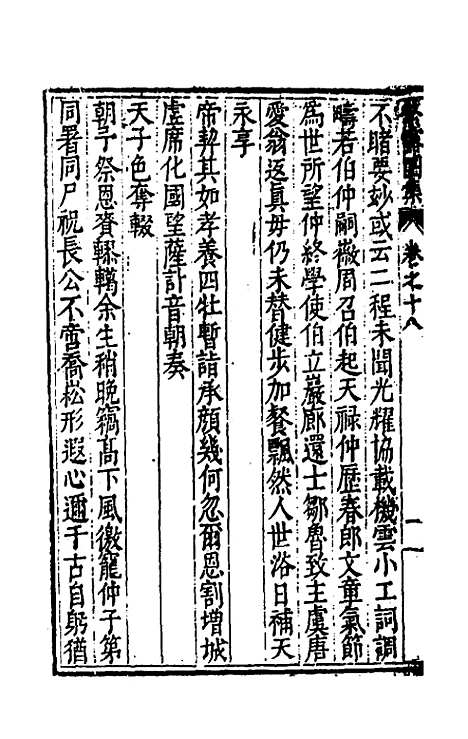 卷之十八
不睹要妙或云二程未聞光耀協載機雲小工詞調
疇若伯仲嗣徽周召伯起天祿仲歷春郎文章氣節
為世所望仲終學使伯立巖郎還士鄒魯致主虞唐
愛翁返眞毋仍未替健步加餐飄然人世浴日補天
永享
帝契其如孝養四牡暫詣承顏幾何忽爾恩割增城
虛席化國望薩訃音朝奏
天子色奪輟
朝予祭恩賚轇轕余生稍晚竊高下風徼寵仲子第
同署同尸祝長公不啻喬松形遐心邇千古自躬猶